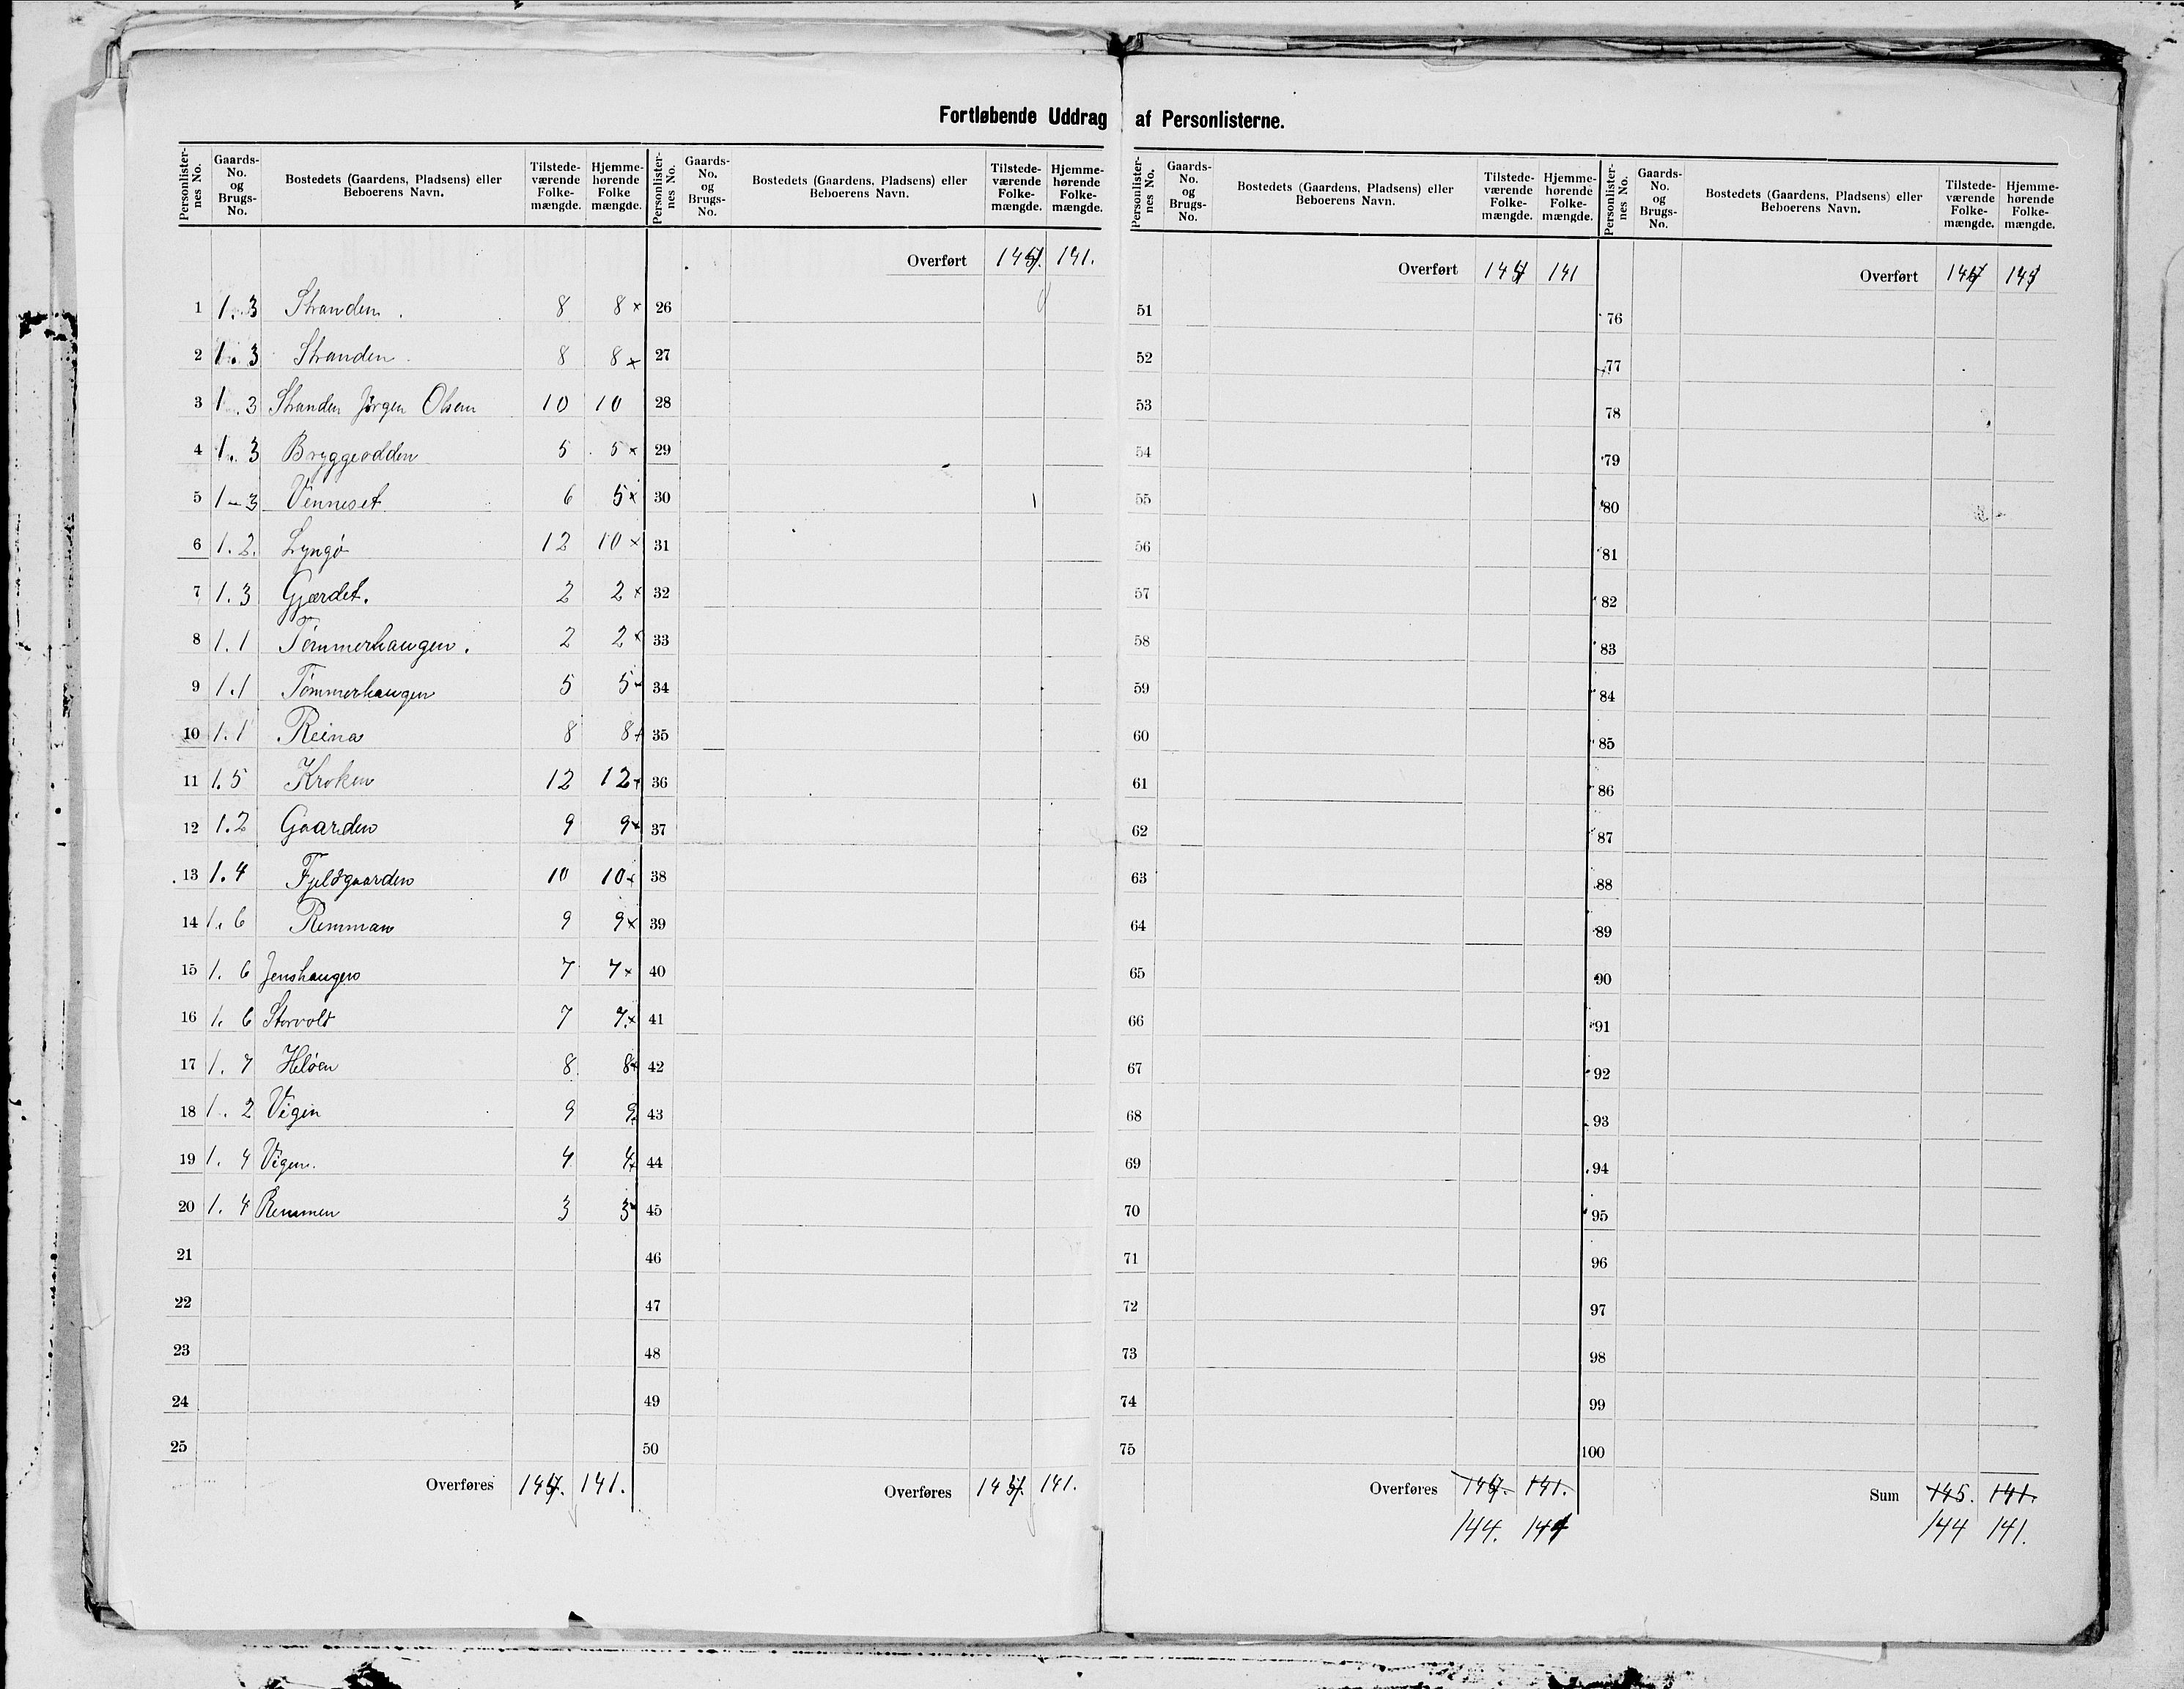 Fortløbende Uddrag af Personlisterne.
Personlister-nes No. | Gaards-No. og Brugs-No. | Bostedets (Gaardens, Pladsens) eller Beboerens Navn. | Tilstede-værende Folke-mængde. | Hjemme-hørende Folke mængde.
1 1. 3 Stranden. 8 8 ×
2 1. 3 Stranden 8 8 ×
3 1. 3 Stranden Jørgen Olsen 10 10
4 1. 3 Bryggeodden 5 5 ×
5 1-3 Venneset 6 5 ×
6 1. 2. Lyngø 12 10 ×
7 1. 3 Gjærdet. 2 2 ×
8 1. 1 Tømmerhaugen. 2 2 ×
9 1. 1 Tømmerhaugen 5 5 ×
10 1. 1 Reina 8 8 ×
11 1. 5 Kroken 12 12 ×
12 1. 2 Gaarden 9 9 ×
13 1. 4 Fjeldgaarden 10 10 ×
14 1. 6 Remman 9 9 ×
15 1. 6 Jenshaugen 7 7 ×
16 1. 6 Storvold 7 7 ×
17 1. 7 Heløen 8 8 ×
18 1. 2 Vigen 9 9
19 1. 4 Vigen. 4 4 ×
20 1. 4 Remmen 3 3 ×
21
22
23
24
25
Overføres 141.
Personlister-nes No. | Gaards-No. og Brugs-No. | Bostedets (Gaardens, Pladsens) eller Beboerens Navn. | Tilstede-værende Folke-mængde. | Hjemme-hørende Folke-mængde.
Overført 141.
26
27
28
29
30
31
32
33
34
35
36
37
38
39
40
41
42
43
44
45
46
47
48
49
50
Overføres 141.
Personlister-nes No. | Gaards-No. og Brugs-No. | Bostedets (Gaardens, Pladsens) eller Beboerens Navn. | Tilstede-værende Folke-mængde. | Hjemme-hørende Folke-mængde.
Overført 141
51
52
53
54
55
56
57
58
59
60
61
62
63
64
65
66
67
68
69
70
71
72
73
74
75
Overføres 141.
144. 141
Personlister-nes No. | Gaards-No. og Brugs-No. | Bostedets (Gaardens, Pladsens) eller Beboerens Navn. | Tilstede-værende Folke-mængde. | Hjemme-hørende Folke-mængde.
Overført 141
76
77
78
79
80
81
82
83
84
85
86
87
88
89
90
91
92
93
94
95
96
97
98
99
100
Sum 145. 141.
144 141.